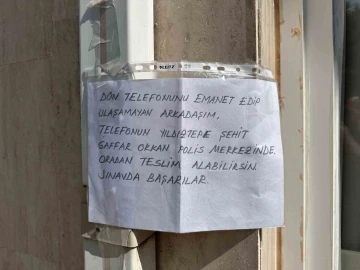 DÜN TELEFONUNU EMANET EDİP
ULAŞAMAYAN ARKADAŞIM.
TELEFONUN YILDIZTEPE ŞEHİT
GAFFAR OKKAN POLİS MERKEZİNDE.
ORADAN TESLİM ALABİLİRSİN
SINAVDA BAŞARILAR.